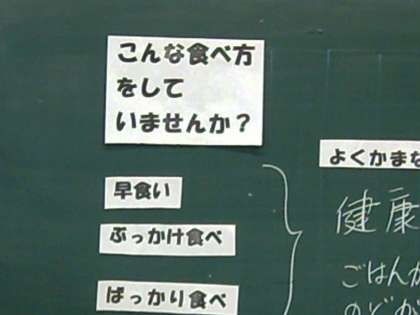 こんな食べ方
をして
いませんか？
早食い
ぶっかけ食べ
ばっかり食べ
よくかまな
健康
ごはんが
のどか